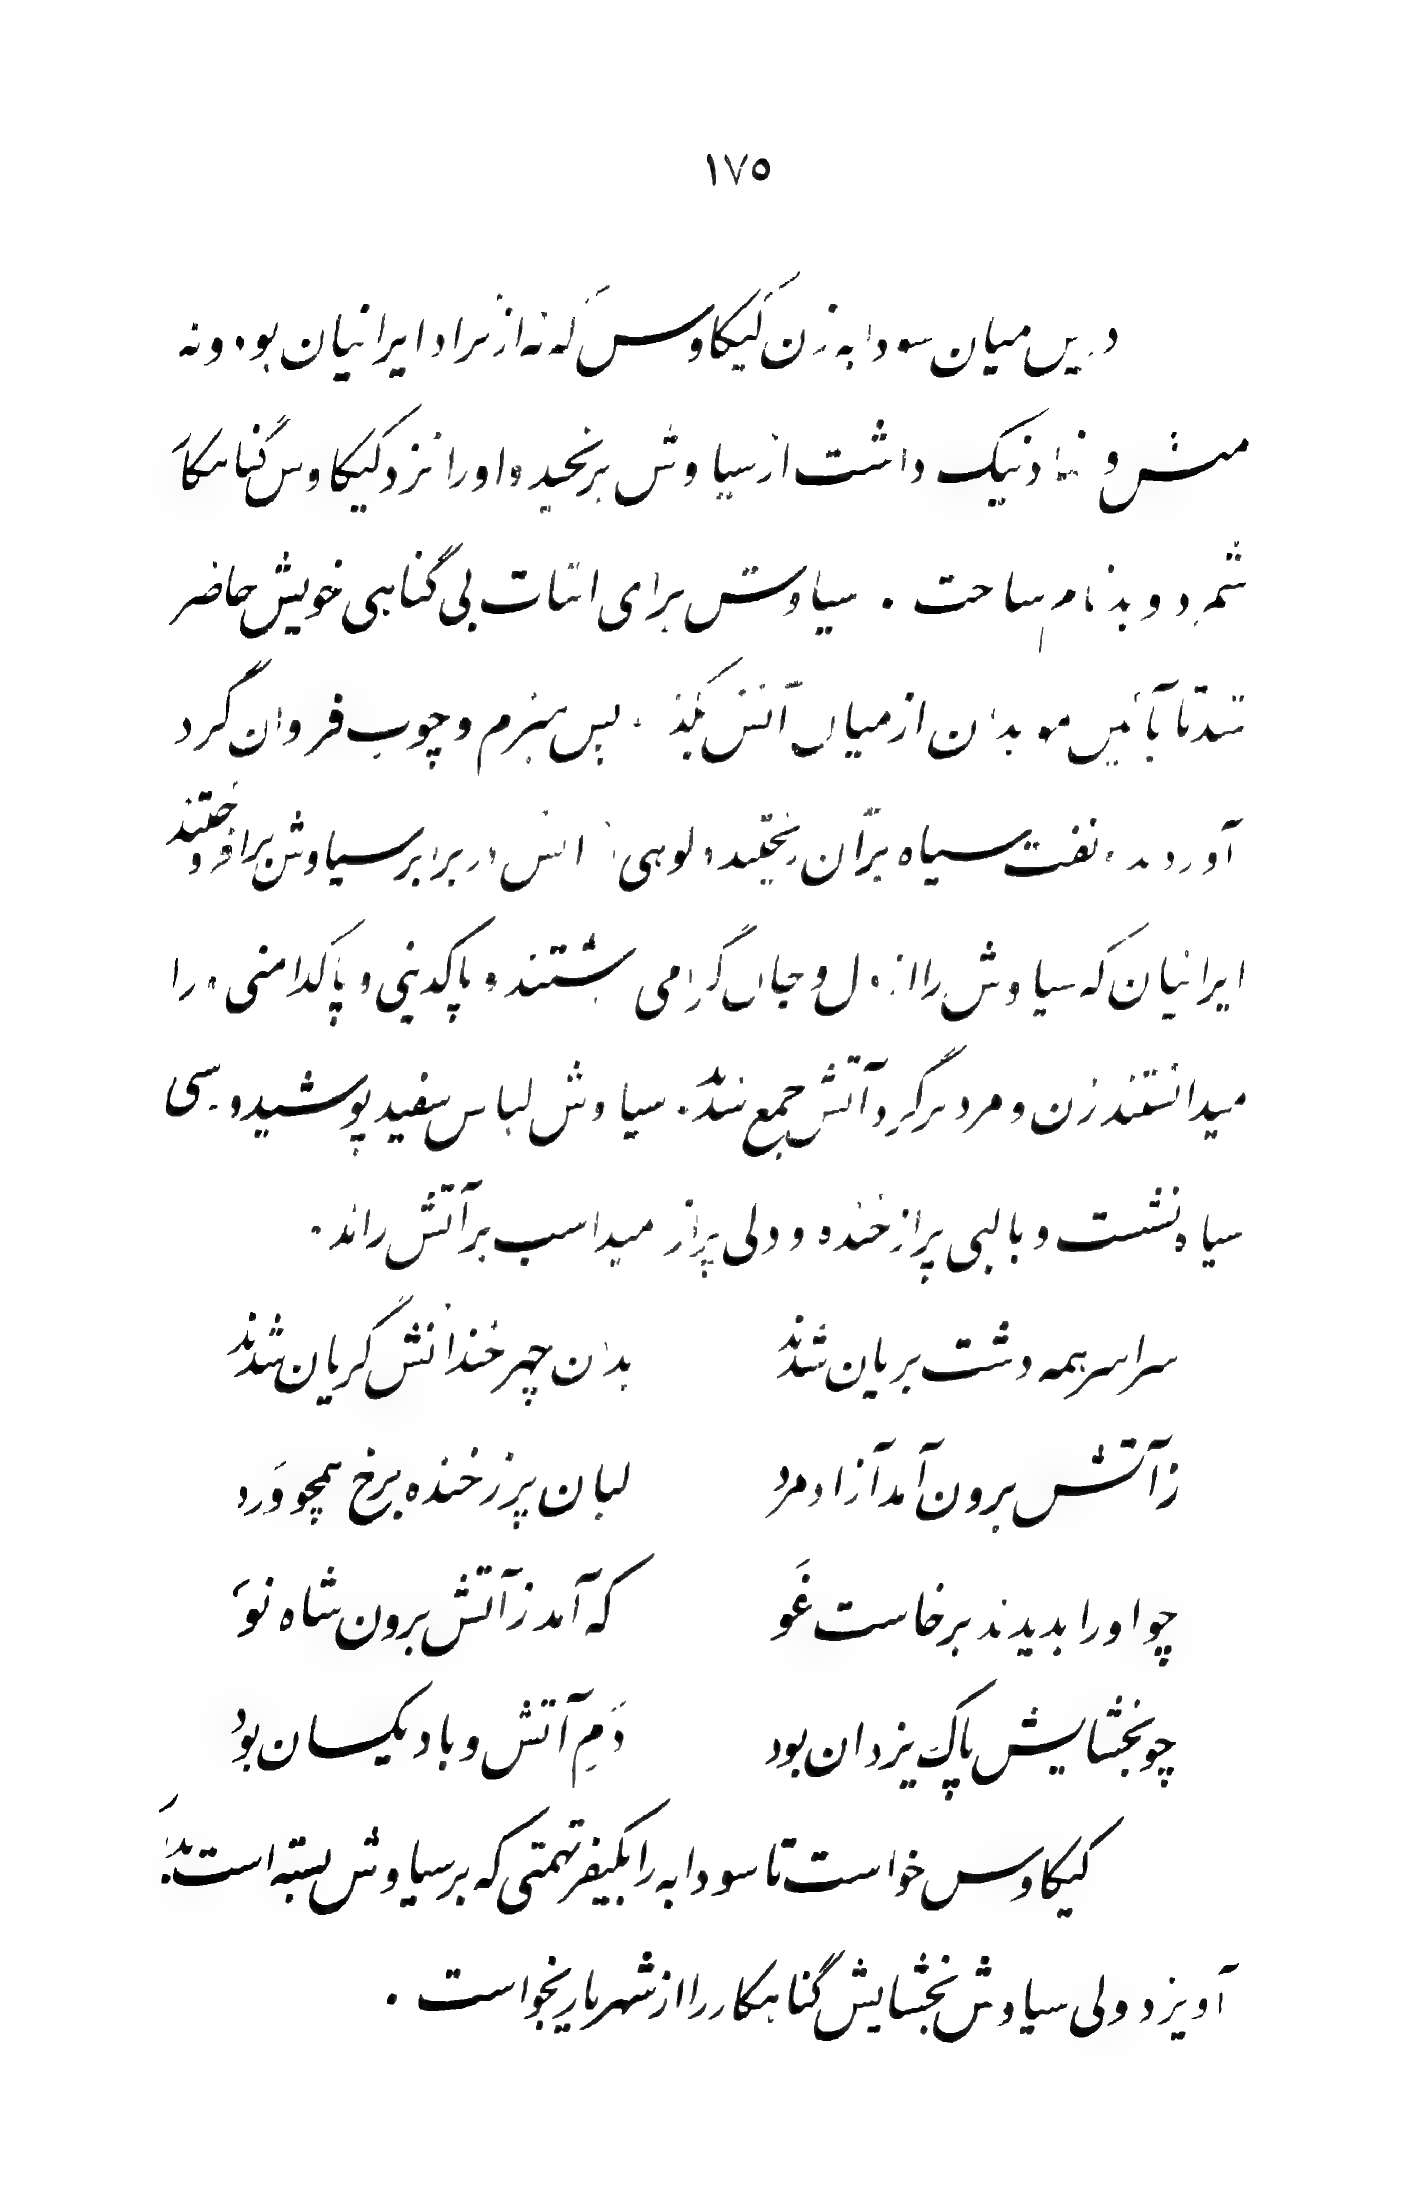 ۱۷۵
درین میان سودابه زن کیکاوس که نه از نژاد ایرانیان بود و نه
منش و نهاد نیک داشت از سیاوش برنجید و او را نزد کیکاوس گناهکار
شمرد و بدنام ساخت . سیاوش برای اثبات بی گناهی خویش حاضر
شد تا بآئین موبدان از میان آتش بگذرد . پس هیزم و چوب فروان گرد
آوردند و نفت سیاه بر آن ریختند و کوهی از آتش در برابر سیاوش برافروختند
ایرانیان که سیاوش را از دل و جان گرامی میداشتند و پاکدینی و پاکدامنی او را
میدانستند زن و مرد بر گرد آتش جمع شدند . سیاوش لباس سفید پوشید و بر اسبی
سیاه نشست و با لبی پر از خنده و دلی پر از امید اسب بر آتش راند .
سراسر همه دشت بریان شدند بدان چهر خندانش گریان شدند
ز آتش برون آمد آزاد مرد لبان پر ز خنده برخ همچو وَرد
چو او را بدیدند برخاست غَو که آمد ز آتش برون شاه نَو
چو بخشایش پاک یزدان بود دَمِ آتش و باد یکسان بود
کیکاوس خواست تا سودابه را بکیفر تهمتی که بر سیاوش بسته است بدار
آویزد ولی سیاوش بخشایش گناهکار را از شهریار بخواست .